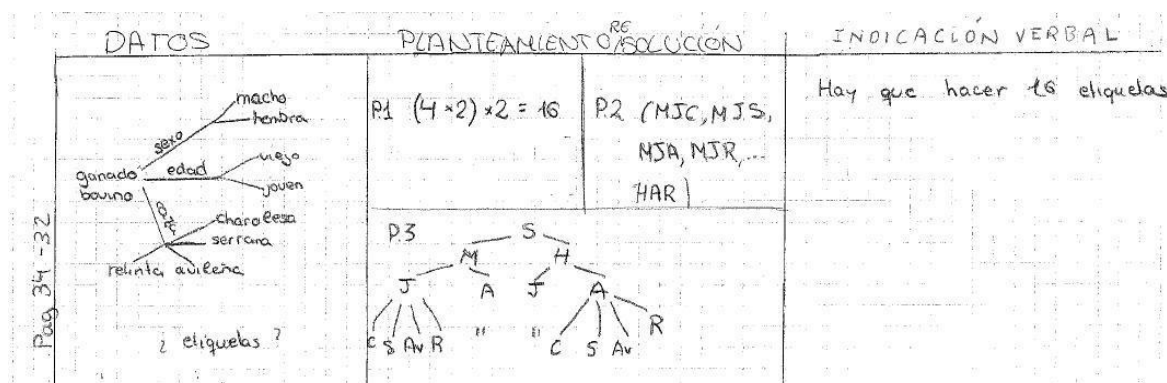 DATOS
PLANTEAMIENTO/RESOLUCIÓN
INDICACIÓN VERBAL
Pag 34-32
macho
hembra
sexo
ganado
bovino
edad
viejo
joven
raza
charolesa
serrana
retinta avileña
¿ etiquetas ?
P.1 (4×2)×2 = 16
P.2 (MJC, MJS,
MJA, MJR, ...
HAR)
P.3
S
M H
J A J A
C S Av R " " C S Av R
Hay que hacer 16 etiquetas